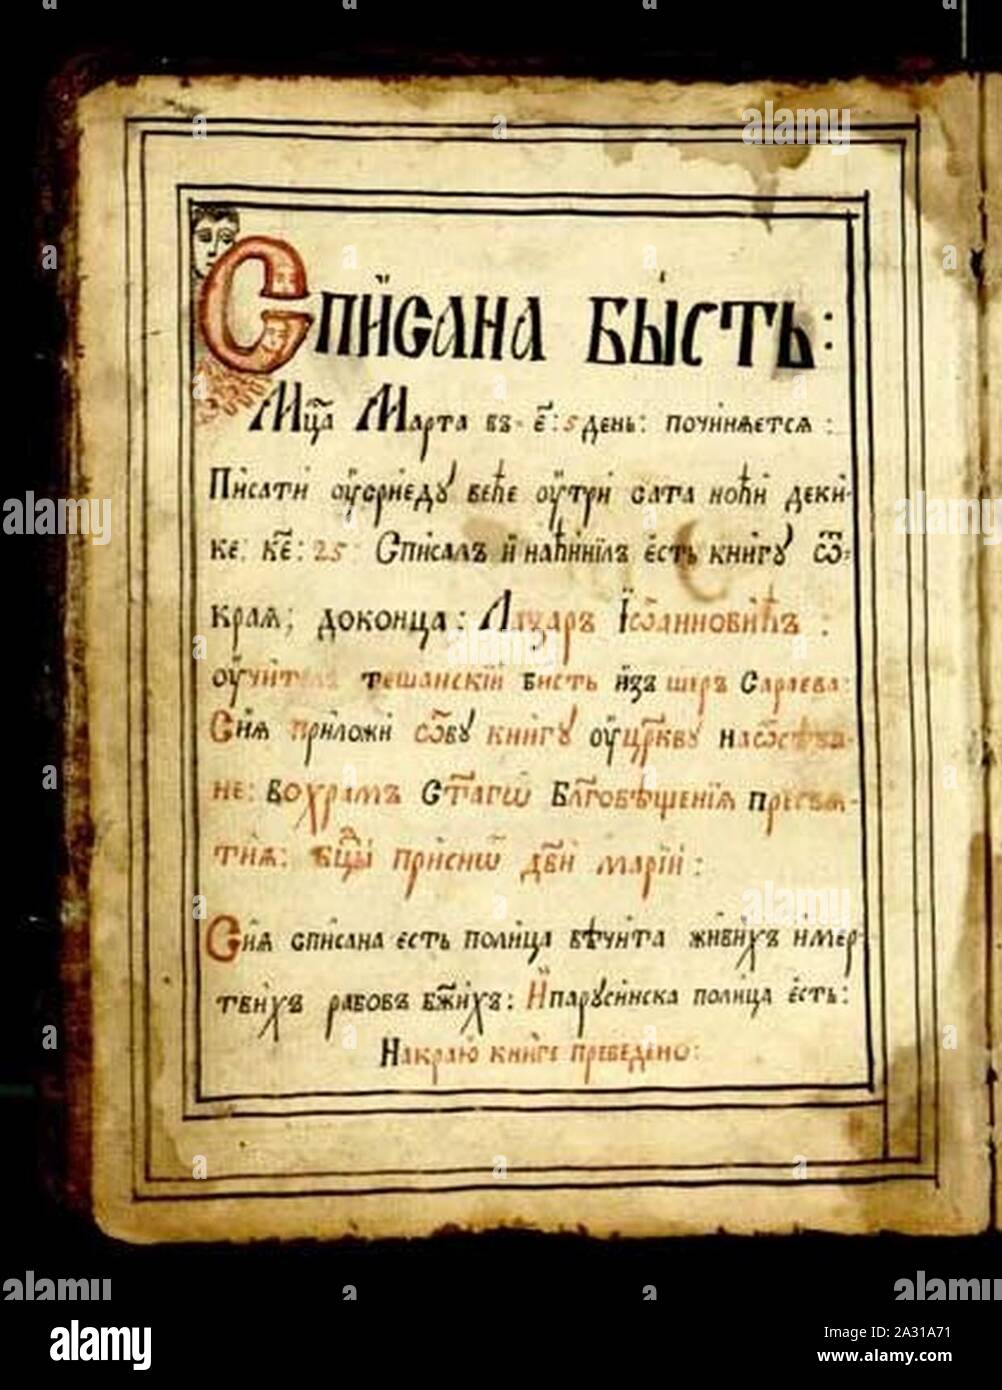 Спи́сана бы́сть:
Мц҃а Марта въ· е҃: 5 день: починѧется:
Писати оу҆сриеду вече оу҆три сата ноћи деки·
ке: ке҃: 25: Списалъ и҆ наћинилъ есть книгу ѿ·
краѧ; доконца: Лазаръ Іѡанновићъ:
оу҆чителъ тешанскїй бисть и҆зъ шеръ Сараева:
Сиѧ приложи ѡву книгу оу҆црк҃ву
не: Вохрамъ Ст҃агѡ Бл҃говѣщенїѧ пресвѧ-
тиѧ: бц҃ы приснѡ дв҃и марїи:
Сиѧ списана есть полица вѣчита живихъ имер-
твихъ рабовъ бж҃ихъ: И҆парусинска полица есть:
Накраю книге преведено:
alamy
a
Image ID: 2A31A71
www.alamy.com